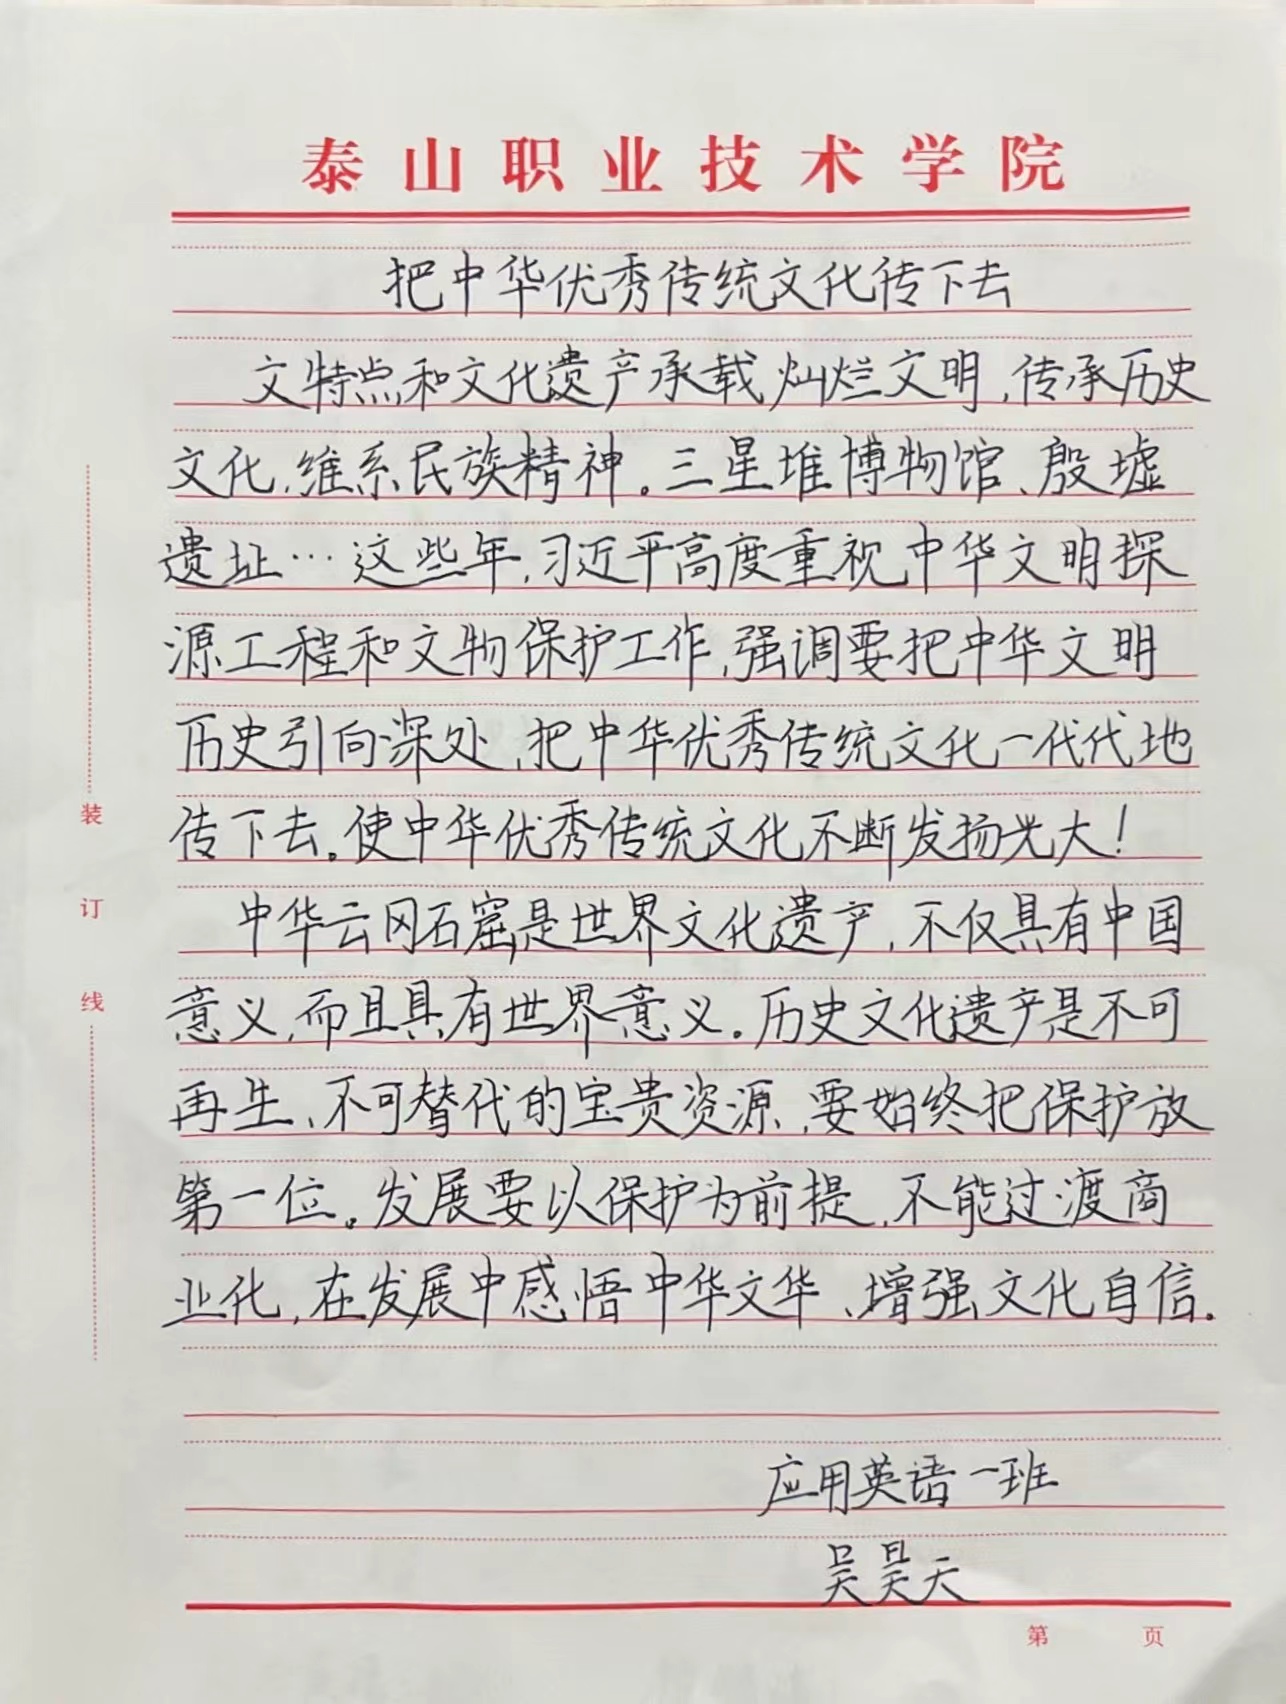 泰山职业技术学院
把中华优秀传统文化传下去
文特点和文化遗产承载灿烂文明,传承历史
文化,维系民族精神。三星堆博物馆、殷墟
遗址…这些年,习近平高度重视中华文明探
源工程和文物保护工作,强调要把中华文明
历史引向深处,把中华优秀传统文化一代代地
传下去。使中华优秀传统文化不断发扬光大!
中华云冈石窟,是世界文化遗产,不仅具有中国
意义,而且具有世界意义。历史文化遗产是不可
再生、不可替代的宝贵资源,要始终把保护放
第一位。发展要以保护为前提,不能过渡商
业化,在发展中感悟中华文华、增强文化自信.
应用英语一班
吴昊天
装
订
线
第 页